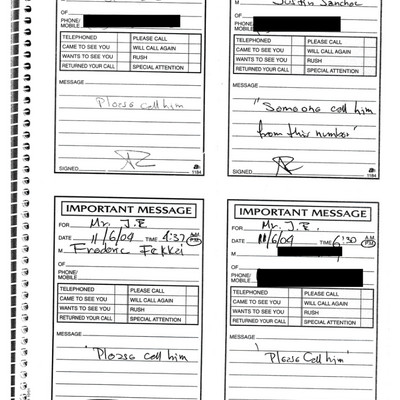 M
OF
PHONE/
MOBILE
TELEPHONED PLEASE CALL
CAME TO SEE YOU WILL CALL AGAIN
WANTS TO SEE YOU RUSH
RETURNED YOUR CALL SPECIAL ATTENTION
MESSAGE
Please call him
SIGNED
1184
M Justin
PHONE/
MOBILE
TELEPHONED PLEASE CALL
CAME TO SEE YOU WILL CALL AGAIN
WANTS TO SEE YOU RUSH
RETURNED YOUR CALL SPECIAL ATTENTION
MESSAGE
"Someone call him
from this number"
SIGNED
1184
IMPORTANT MESSAGE
FOR Mr. J.E.
DATE 11/6/04 TIME 4:37 A.M. P.M.
M Frederic Fekkai
OF
PHONE/
MOBILE
TELEPHONED PLEASE CALL
CAME TO SEE YOU WILL CALL AGAIN
WANTS TO SEE YOU RUSH
RETURNED YOUR CALL SPECIAL ATTENTION
MESSAGE
"Please call him
IMPORTANT MESSAGE
FOR Mr. J.E.
DATE 11/6/04 TIME 6:30 A.M. P.M.
M
OF
PHONE/
MOBILE
TELEPHONED PLEASE CALL
CAME TO SEE YOU WILL CALL AGAIN
WANTS TO SEE YOU RUSH
RETURNED YOUR CALL SPECIAL ATTENTION
MESSAGE
"Please Call him"